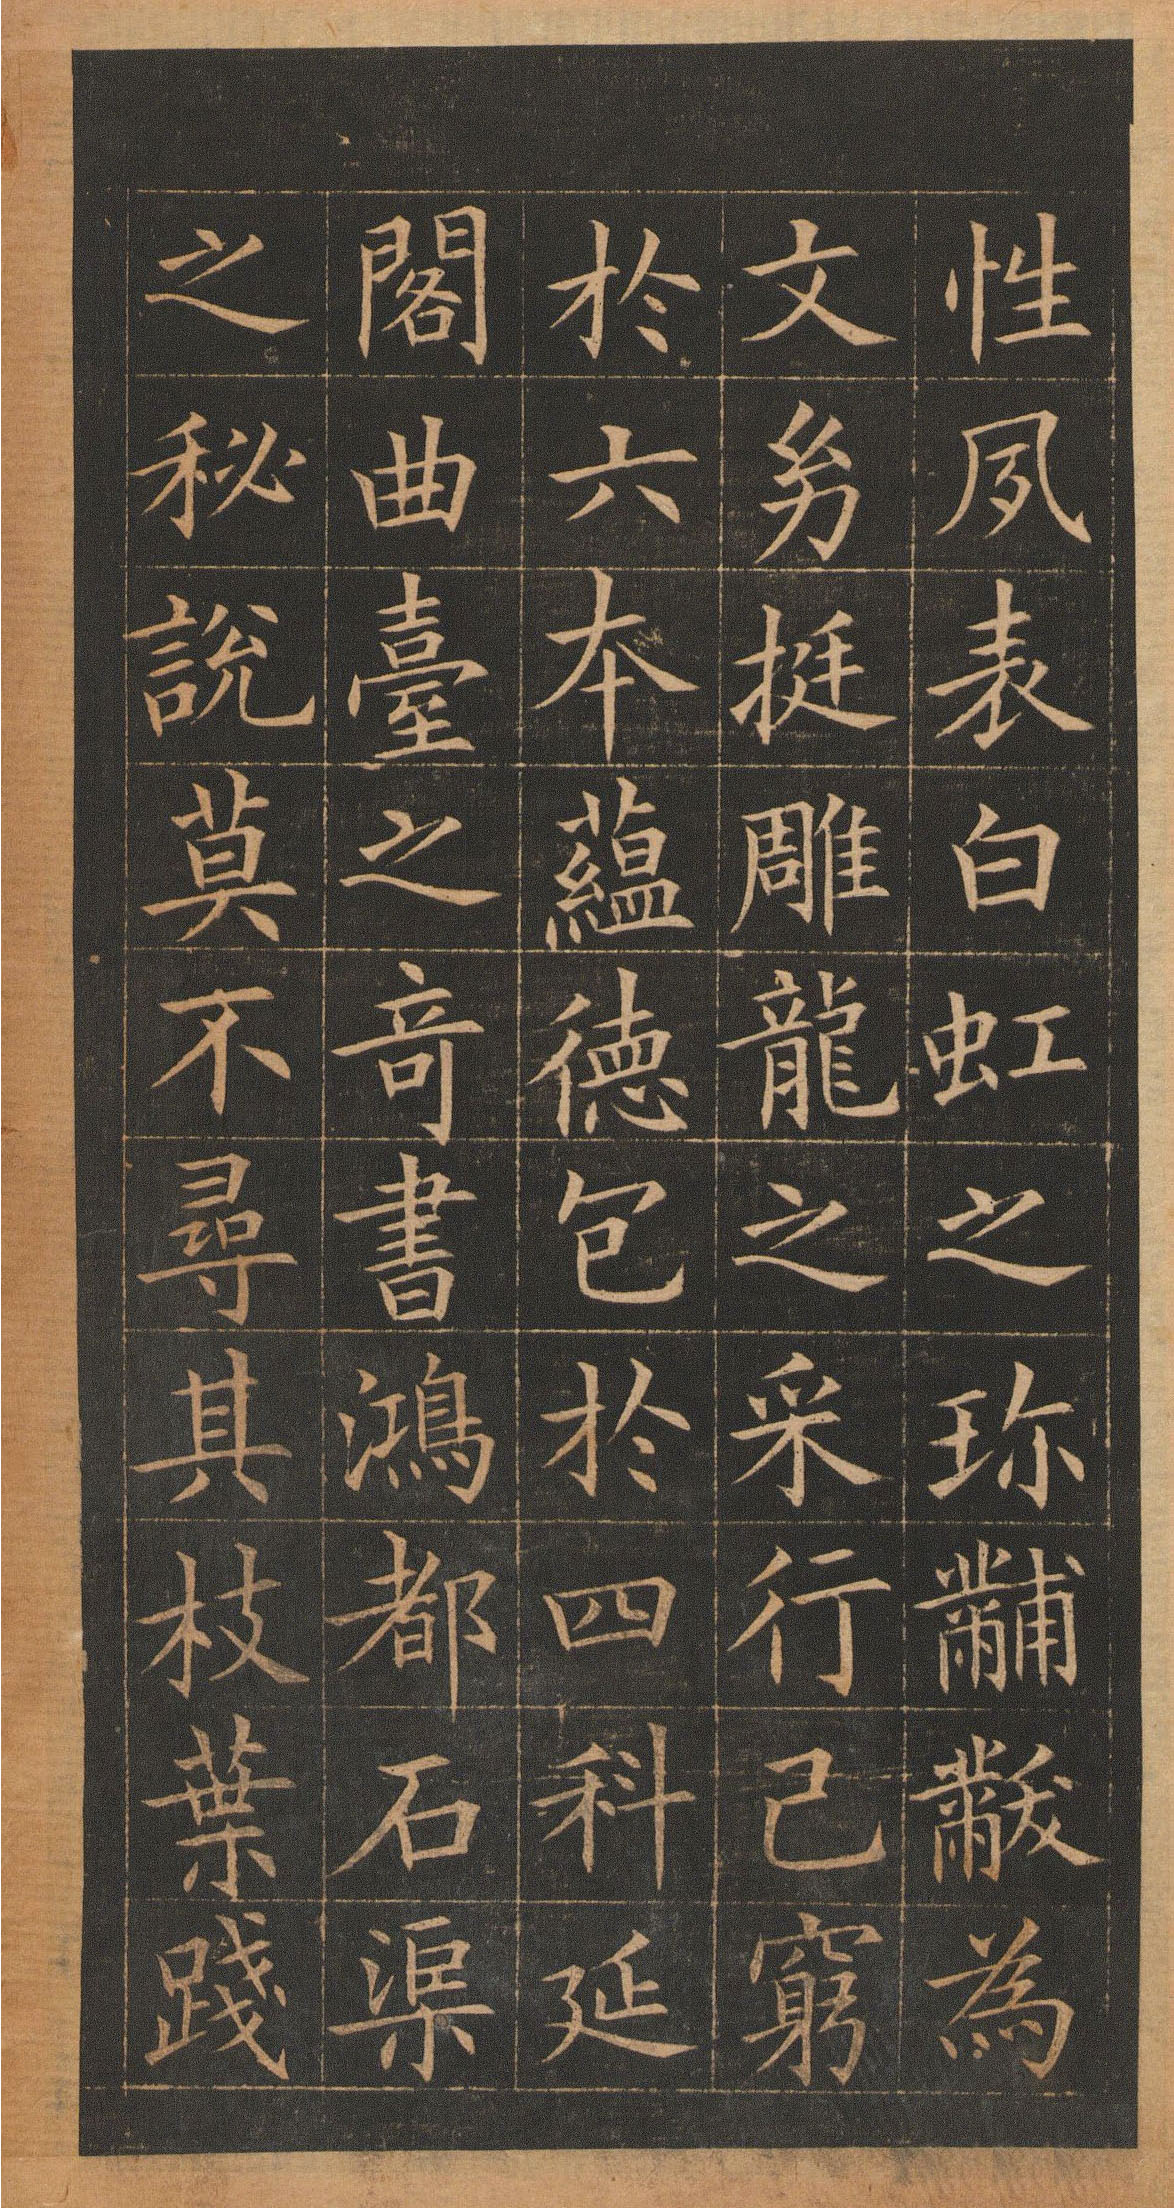 性夙表白虹之珎黼黻為
文㓜挺雕龍之采行己窮
於六本蘊德包於四科延
閣曲臺之竒書鴻都石渠
之秘說莫不尋其枝葉踐